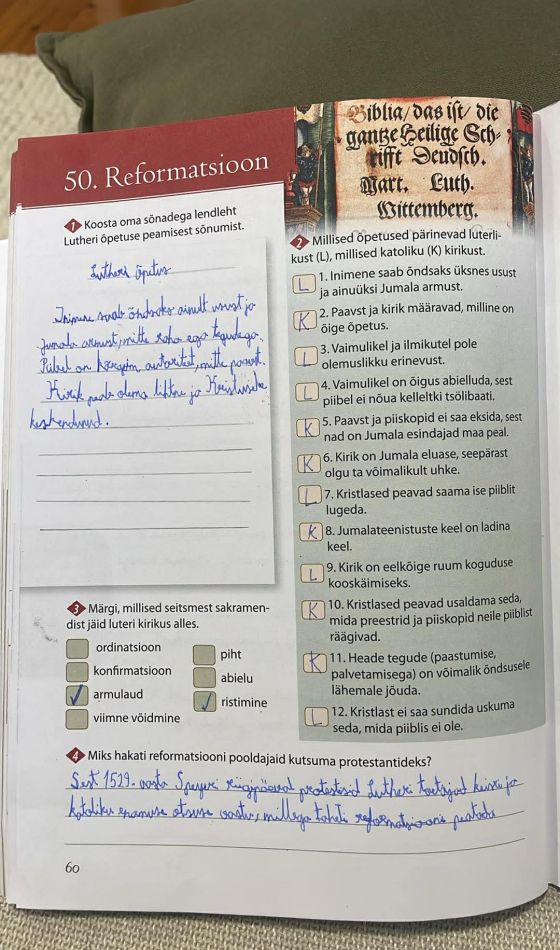 50. Reformatsioon
Biblia/das ist/ die
gantze Heilige Sch-
rifft Deudsch.
Mart. Luth.
Wittemberg.
1 Koosta oma sõnadega lendleht
Lutheri õpetuse peamisest sõnumist.
Lutheri õpetus
Inimene saab õndsaks ainult usust ja
Jumala armust, mitte raha ega tegudega.
Piibel on kõrgeim autoriteet, mitte paavst.
Kirik peab olema lihtne ja Kristusele
keskendunud.
2 Millised õpetused pärinevad luterli-
kust (L), millised katoliku (K) kirikust.
L 1. Inimene saab õndsaks üksnes usust
ja ainuüksi Jumala armust.
K 2. Paavst ja kirik määravad, milline on
õige õpetus.
L 3. Vaimulikel ja ilmikutel pole
olemuslikku erinevust.
L 4. Vaimulikel on õigus abielluda, sest
piibel ei nõua kelleltki tsölibaati.
K 5. Paavst ja piiskopid ei saa eksida, sest
nad on Jumala esindajad maa peal.
K 6. Kirik on Jumala eluase, seepärast
olgu ta võimalikult uhke.
L 7. Kristlased peavad saama ise piiblit
lugeda.
K 8. Jumalateenistuste keel on ladina
keel.
L 9. Kirik on eelkõige ruum koguduse
kooskäimiseks.
K 10. Kristlased peavad usaldama seda,
mida preestrid ja piiskopid neile piiblist
räägivad.
K 11. Heade tegude (paastumise,
palvetamisega) on võimalik õndsusele
lähemale jõuda.
L 12. Kristlast ei saa sundida uskuma
seda, mida piiblis ei ole.
3 Märgi, millised seitsmest sakramen-
dist jäid luteri kirikus alles.
ordinatsioon
konfirmatsioon
armulaud
viimne võidmine
piht
abielu
ristimine
4 Miks hakati reformatsiooni pooldajaid kutsuma protestantideks?
Sest 1529. aasta Speyeri riigipäeval protestisid Lutheri toetajad keisri ja
katoliku enamuse otsuse vastu, millega taheti reformatsiooni peatada
60